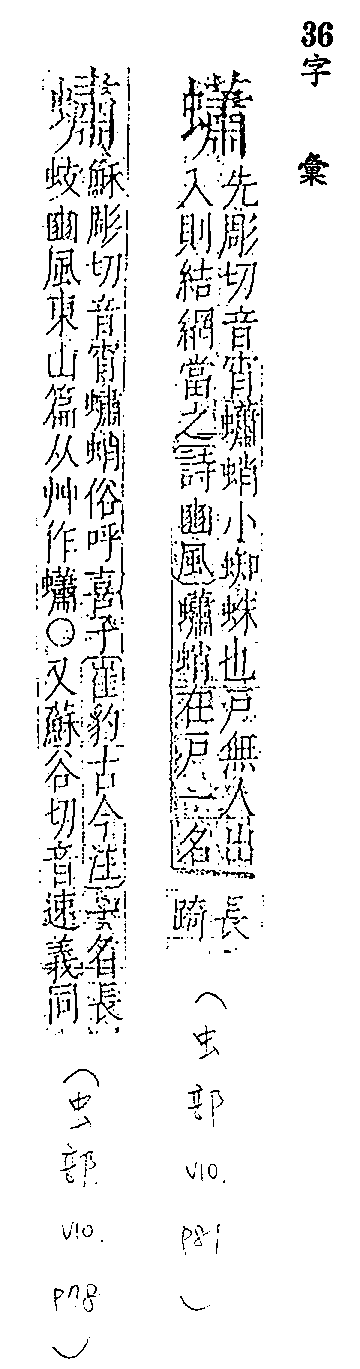 36 字彙
蠨 先彫切音宵蠨蛸小蜘蛛也戸無人出
入則結網當之詩豳風蠨蛸在戸一名
長踦
(虫部 V10. P81)
蟰 蘇彫切音宵蟰蛸俗呼喜子崔豹古今注一名長
蚑豳風東山篇从艸作蠨○又蘇谷切音速義同
(虫部 V10. P78)